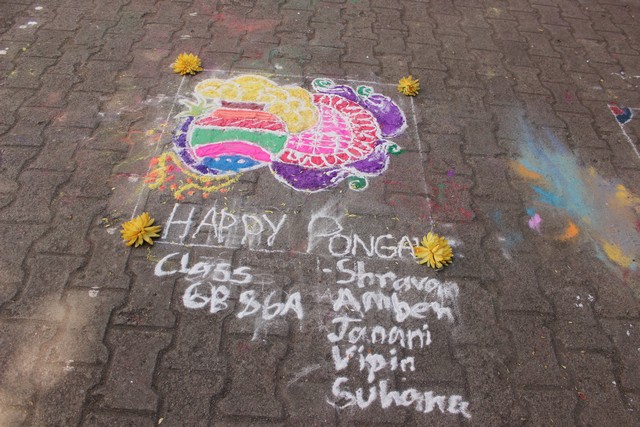 HAPPY PONGAL
Class
6B &6A
-Shravan
Amben
Janani
Vipin
Suhana